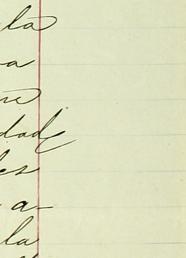 la
a
re
dad
les
a-
la